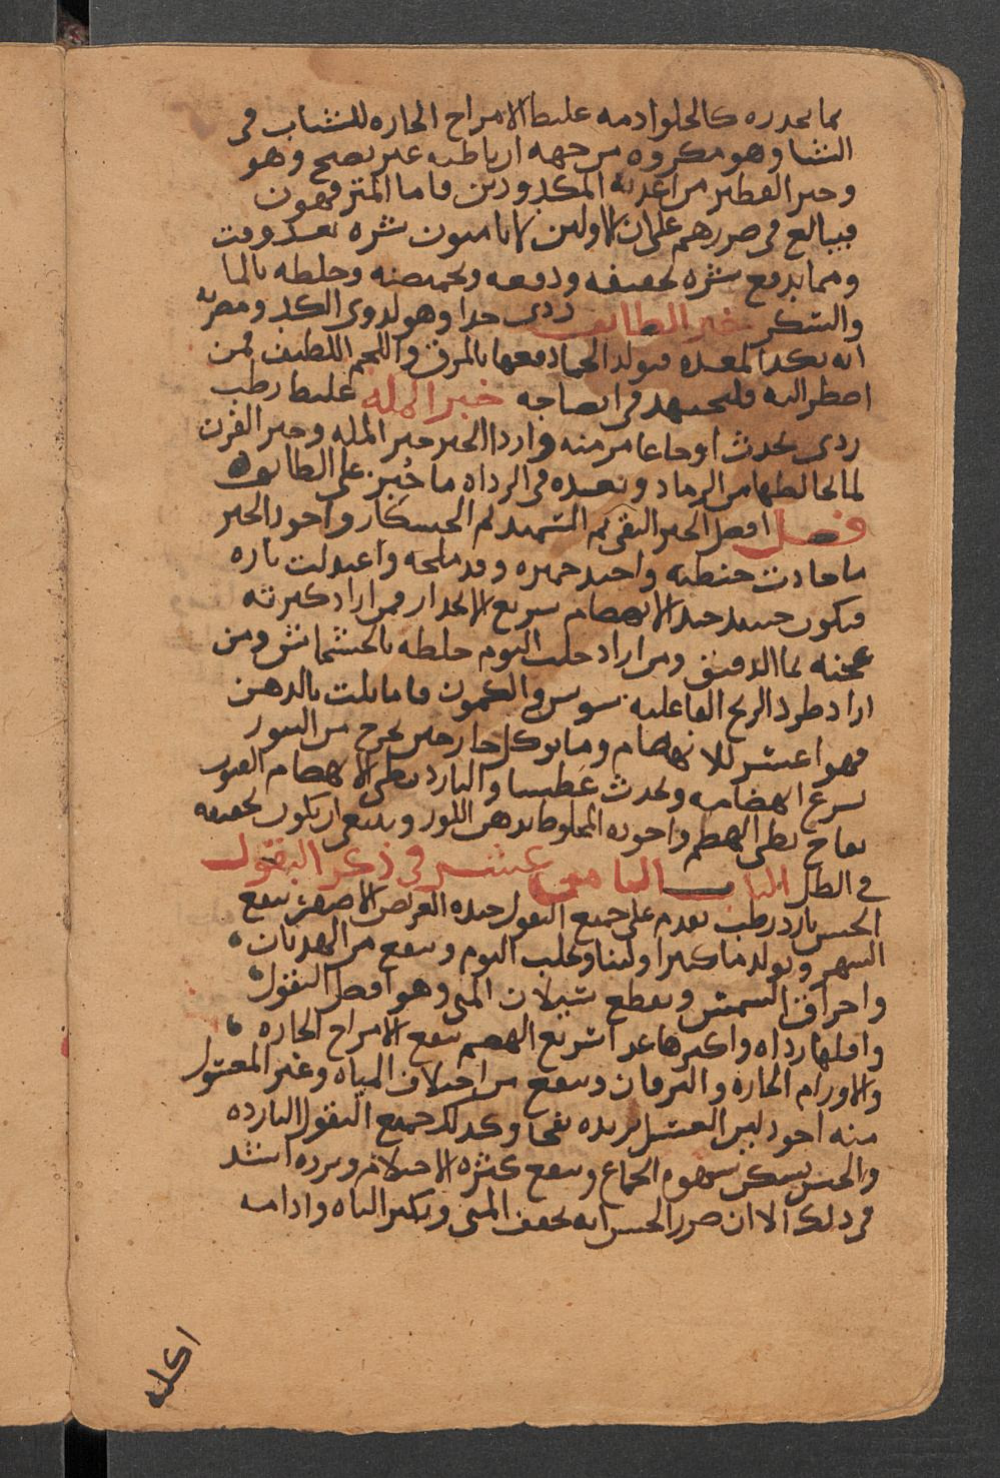 مما يحدره كالحلوا دمه غليظ الامزاج الحاره للشباب في
الشتا وهو مكروه من جهه ان باطنه غير نضج وهو
وخبز الفطير من اغذية المكدودين فاما المترفهون
فيبالغ في ضررهم على ان الاولين لا يامنون شره بعد وقت
ومما يدفع شره تجفيفه ودقه وتحميصه وخلطه بالما
والسكر خبز الطابق ردي جدا وهو لذوي الكد ومضرته
انه يكد المعده فيولد الحما دفعها بالمرق واللحم اللطيف فمن
اضطر اليه فليجتهد في انضاجه خبز المله غليظ رطب
ردي يحدث اوجاعا مزمنه واردا الخبز خبز المله وخبز الفرن
لما يخالطها من الرماد وبعده في الرداه ما خُبِز على الطابق
فصل افضل الخبز النقي ثم السميد ثم الخشكار واجود الخبز
ما جادت حنطته واجيد خميره وقدر ملحه واعتدلت ناره
فيكون حينيذ جيد الانهضام سريع الانحدار فمن اراد كثرته
عجنه بما الدقيق ومن اراد جلب النوم خلطه بالخشخاش ومن
اراد طرد الريح القا عليه سوس والكمون فاما يلت بالدهن
فهو اعسر للانهضام وما يوكل حار حين يخرج من التنور
يسرع انهضامه ويحدث عطشا والبارد بطي الانهضام
نفاخ بطي الهضم واجوده المخلوط بدهن اللوز وينبغي ان يكون تجفيفه
في الظل الباب الثامن عشر في ذكر البقول
الخس بارد رطب يقدم على جميع البقول جيده العريض الاصفر ينفع
السهر ويولد دما كثيرا ولبنا ويجلب النوم وينفع من الهذيان
واحراق الشمس ويقطع سيلان المني وهو افضل البقول
واقلها رداه واكثرها غدا سريع الهضم ينفع الامزاج الحاره
والاورام الحاره واليرقان وينفع من اختلاف المياه وغير المغسول
منه اجود ليس الغسل يزيده نفخا وكذلك جميع البقول البارده
والخس يسكن شهوه الجماع وينفع كثره الاحتلام وبزره اشد
في ذلك الا ان ضرر الخس انه يجفف المني ويكسر الباه وادامه
اكله